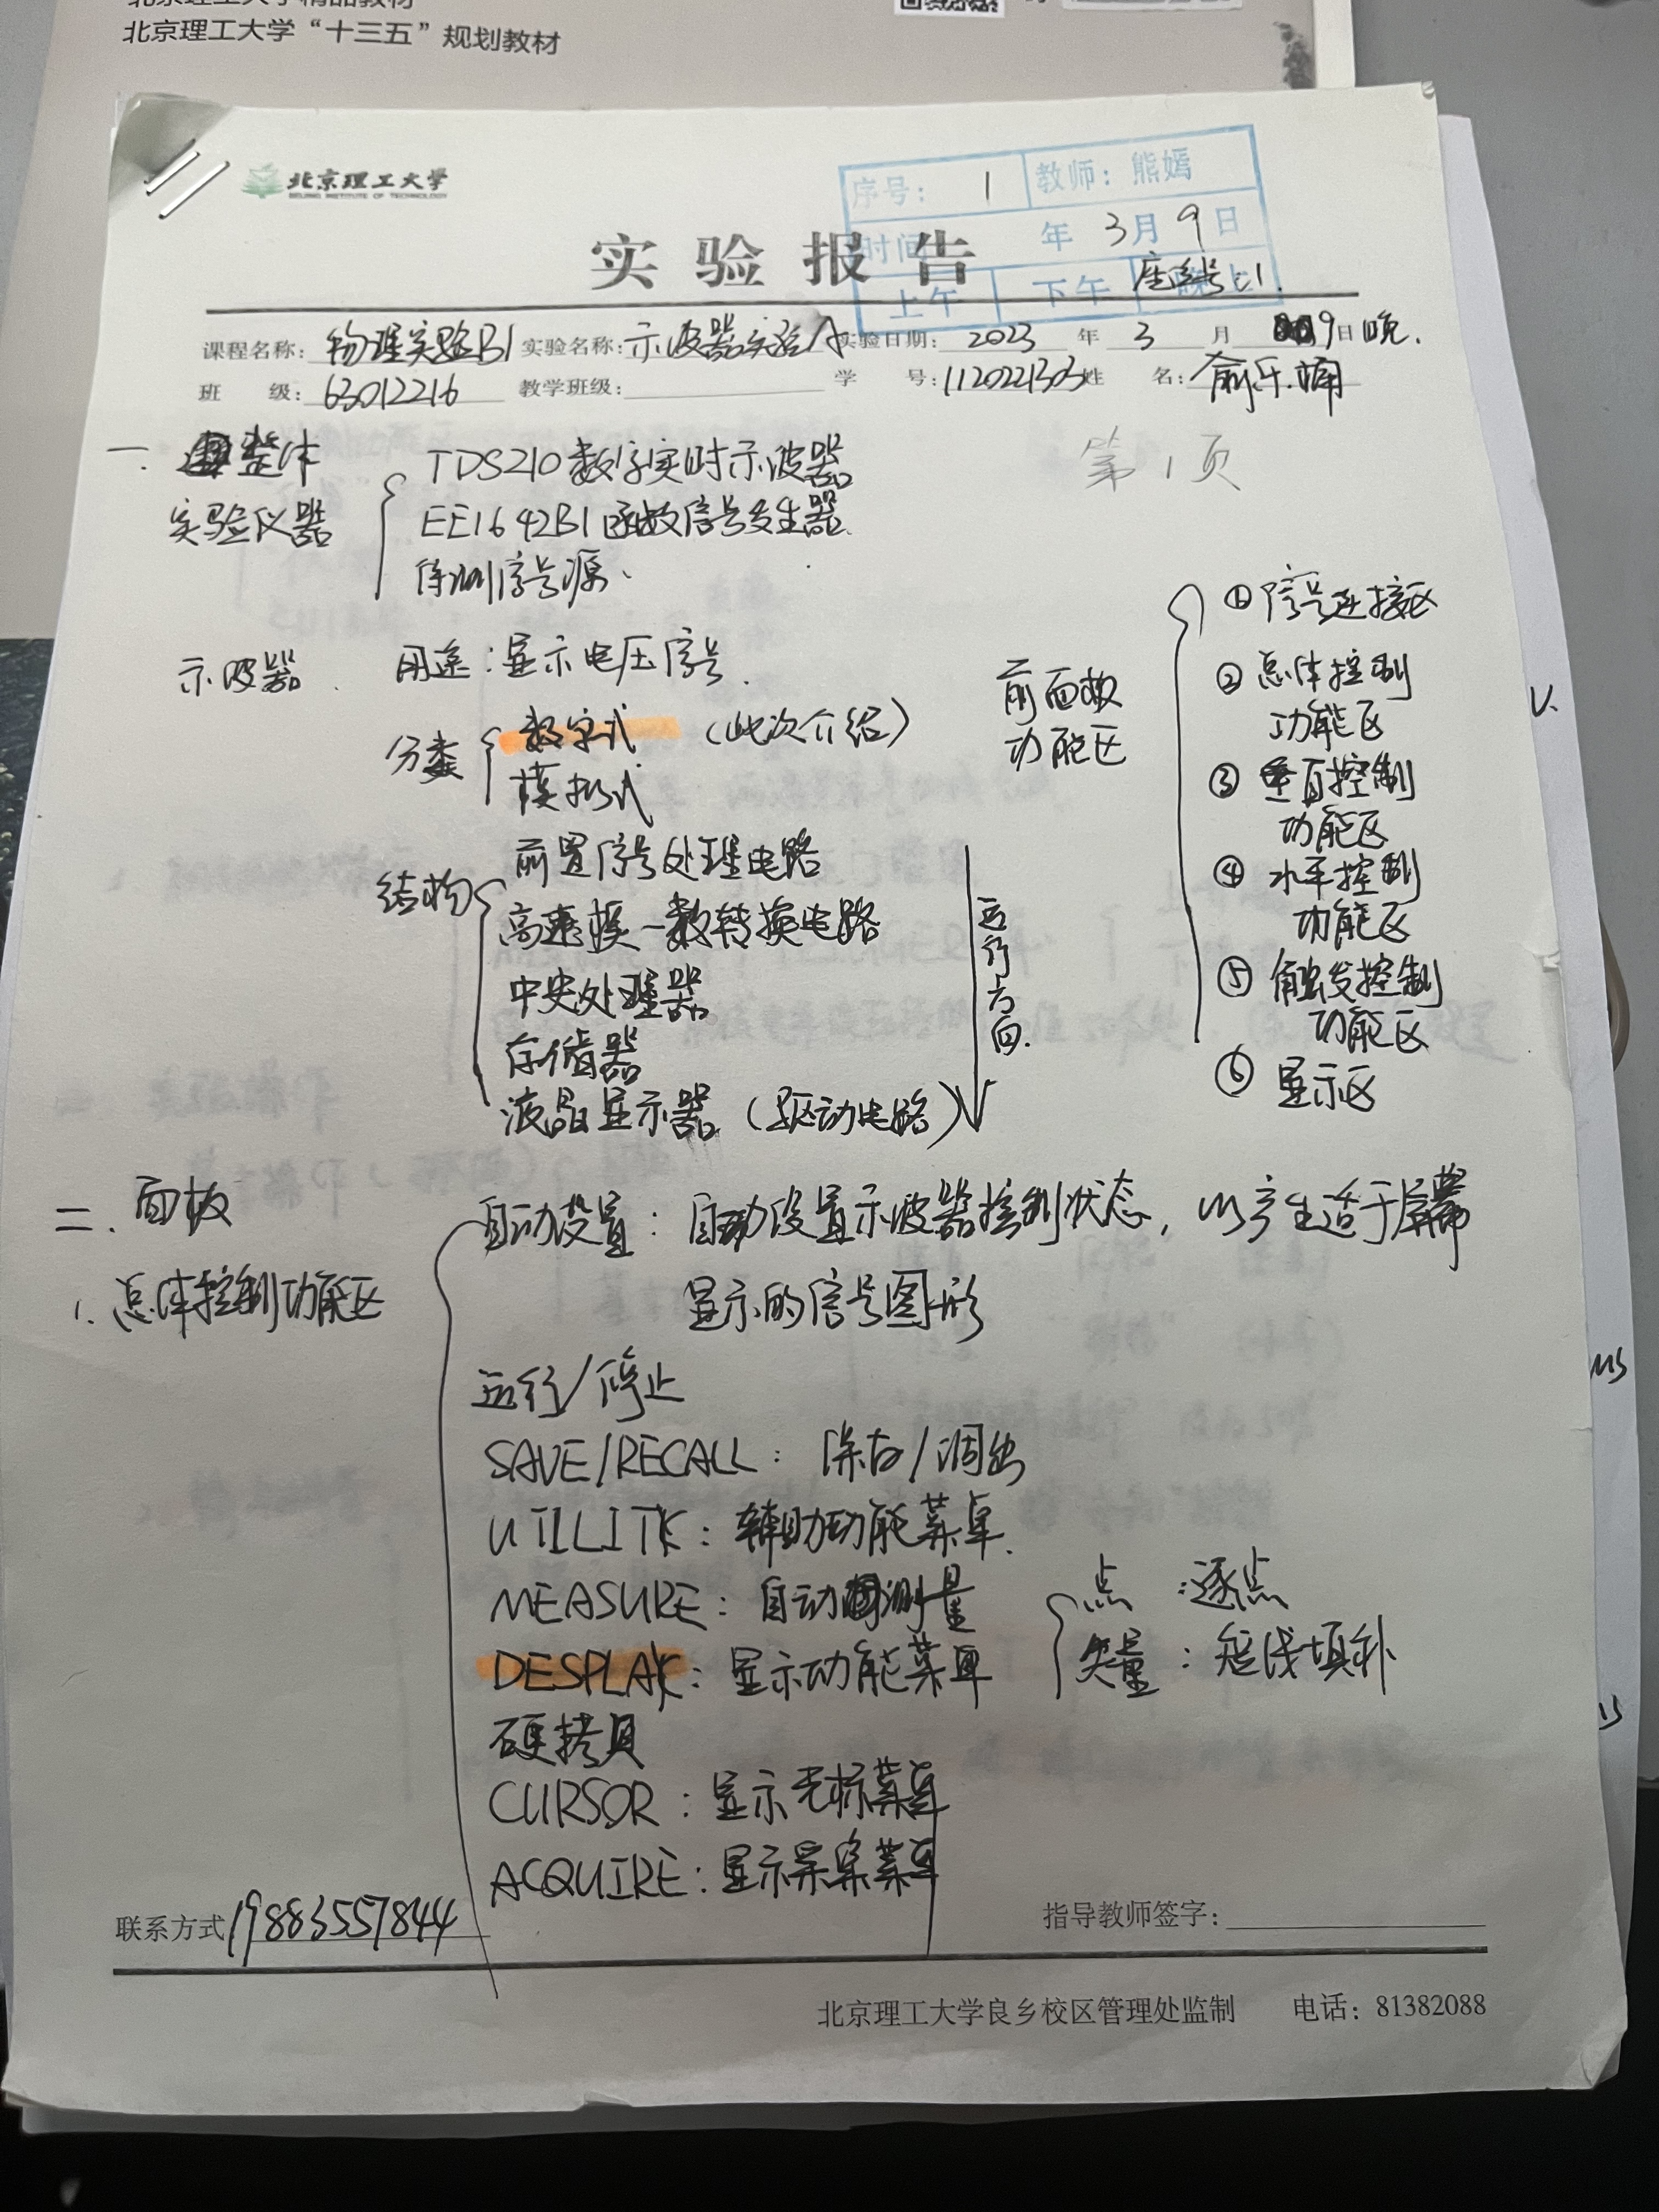 北京理工大学精品教材
北京理工大学“十三五”规划教材
北京理工大学
BEIJING INSTITUTE OF TECHNOLOGY
序号： 1 教师：熊嫣
时间 年 3月 9日
上午 下午
座号：1.
实验报告
课程名称：物理实验B1 实验名称：示波器实验A 实验日期：2023 年 3 月 9日晚.
班 级：63012216 教学班级： 学 号：1120221303 姓 名：俞乐楠
第1页
一. 整体
实验仪器
TDS210数字实时示波器
EE1642B1函数信号发生器.
待测信号源.
示波器. 用途：显示电压信号.
分类 数字式 （此次介绍）
模拟式
结构 前置信号处理电路
高速模—数转换电路
中央处理器
存储器
液晶显示器（驱动电路）
运行方向.
前面板
功能区
①信号连接区
②总体控制
功能区
③垂直控制
功能区
④水平控制
功能区
⑤触发控制
功能区
⑥显示区
V.
二. 面板
1. 总体控制功能区
自动设置：自动设置示波器控制状态，以产生适于屏幕
显示的信号图形
运行/停止
SAVE/RECALL：保存/调出
UTILITY：辅助功能菜单.
MEASURE：自动测量
DESPLAY：显示功能菜单
点：逐点
矢量：短线填补
硬拷贝
CURSOR：显示光标菜单
ACQUIRE：显示采集菜单
MS
联系方式 19883557844
指导教师签字：
北京理工大学良乡校区管理处监制 电话：81382088